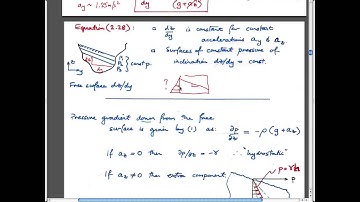 a₂ = 1.25 m/s²
dy
(g + a_z)
Equation (2.28):
① dz/dy is constant for constant
accelerations a_y & a_z
② Surfaces of constant pressure of
inclination dz/dy = const.
z
dz
dy
P₁
P₂
P₃
const p.
Free surface dz/dy
?
Pressure gradient down from the free
surface is given by (1) as: ∂p/∂z = -ρ(g + a_z)
if a_z = 0 then ∂p/∂z = -γ ∴ "hydrostatic"
if a_z ≠ 0 then extra component
p = γh
P